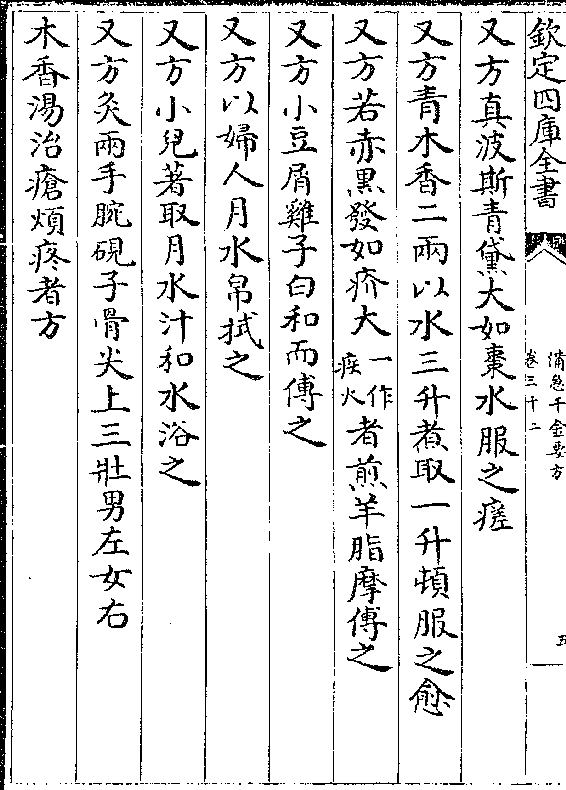 欽定四庫全書
備急千金要方
卷三十二
五
又方真波斯青黛大如棗水服之瘥
又方青木香二兩以水三升煮取一升頓服之愈
又方若赤黒發如疥大一作疾火者煎羊脂摩傅之
又方小豆屑雞子白和而傅之
又方以婦人月水帛拭之
又方小兒著取月水汁和水浴之
又方灸兩手腕硯子骨尖上三壯男左女右
木香湯治瘡煩疼者方